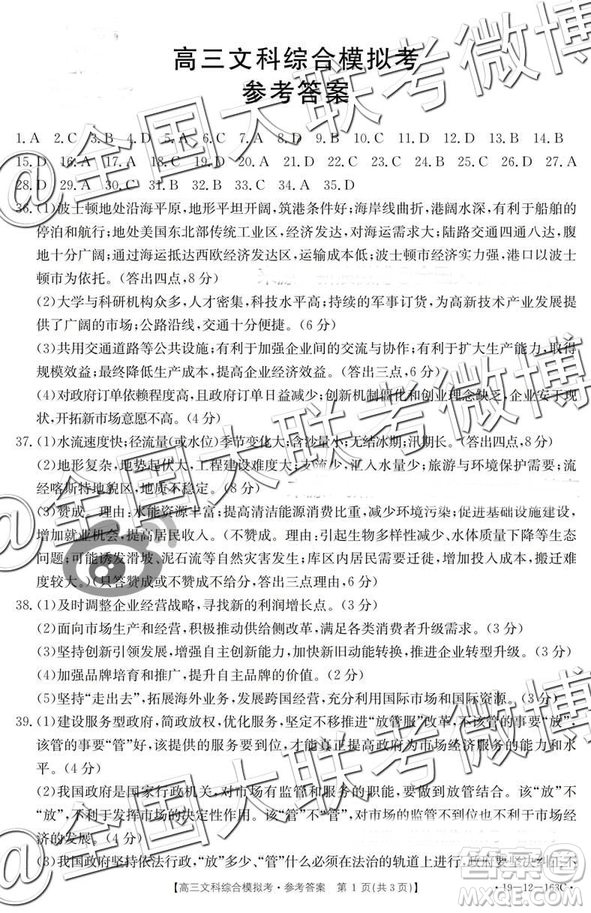 高三文科综合模拟考
参考答案
1. A 2. C 3. B 4. D 5. A 6. C 7. A 8. D 9. C 10. B 11. D 12. D 13. B 14. B
15. D 16. A 17. A 18. B 19. D 20. D 21. D 22. C 23. D 24. C 25. D 26. C 27. A
28. D 29. A 30. B 31. B 32. B 33. C 34. A 35. D
36. (1)波士顿地处沿海平原,地形平坦开阔,筑港条件好;海岸线曲折,港阔水深,有利于船舶的
停泊和航行;地处美国东北部传统工业区,经济发达,对海运需求大;陆路交通四通八达,腹
地十分广阔;通过海运抵达西欧经济发达国家距离近;波士顿市经济实力强,海港以波士
顿市为依托。(答出四点,8分)
(2)大学与科研机构众多,人才丰富,科技水平高;持续的军事订货,为高新技术产业发展提
供了广阔的市场;公路沿线,交通十分便捷。(6分)
(3)共用交通道路等公共设施;有利于加强企业之间的交流与协作;有利于扩大生产能力,取得
规模效益;最终降低生产成本,提高企业经济效益。(答出三点,6分)
(4)对政府订单依赖程度高,且政府订单日益减少;创新机制僵化和创业理念缺乏,企业
开拓新市场意愿不高。(4分)
37. (1)水流速度快;径流量(或水位)季节变化大;含沙量小;无结冰期;汛期长。(答出四点,8分)
(2)地形复杂,地势起伏大,工程建设难度大,投资大;移民人口数量多;旅游与环境保护需要;流
经喀斯特地貌区,地质不稳定。(8分)
(3)赞成。理由:水能资源丰富;提高清洁能源消费比重,减少环境污染;促进基础设施建设,
增加就业机会,提高居民收入。(不赞成。理由:引起生物多样性减少、水体富营养化等生态
问题;可能诱发滑坡、泥石流等自然灾害发生;库区内居民需要迁移,增加投入成本,影响社
会稳定。)(只答赞成或不赞成不给分。答出三点,6分)
38. (1)及时调整企业经营战略,寻找新的利润增长点。(3分)
(2)面向市场生产和经营,提供个性化服务,满足各类消费者升级需求。(3分)
(3)坚持创新引领发展,加快新旧动能转换,推进企业转型升级。(3分)
(4)加强品牌培育和推广,提升品牌的价值。(2分)
(5)坚持“走出去”,拓展海外业务,发展跨国经营,充分利用国际市场和国际资源。(3分)
39. (1)建设服务型政府,简政放权,优化服务,坚持不断推进“放管服”改革,不该管的事要“放”,
该管的事要“管”好,该提供的服务要到位,有利于提高政府对市场经济服务和治理的水
平。(4分)
(2)我国政府是国家行政机关,具有对市场监管和服务的职能,要做好放管结合。该“放”不
“放”,不能发挥市场的决定性作用。该“管”不“管”,市场的监管不到位也不利于市场经
济的发展。(4分)
(3)我国政府坚持依法行政,“放”多少、“管”什么必须在法治的轨道上进行。政府要坚决纠正不
【高三文科综合模拟考·参考答案 第 1 页(共 3 页)】
·19-12-163C·
@全国大联考微博
@全国大联考微博